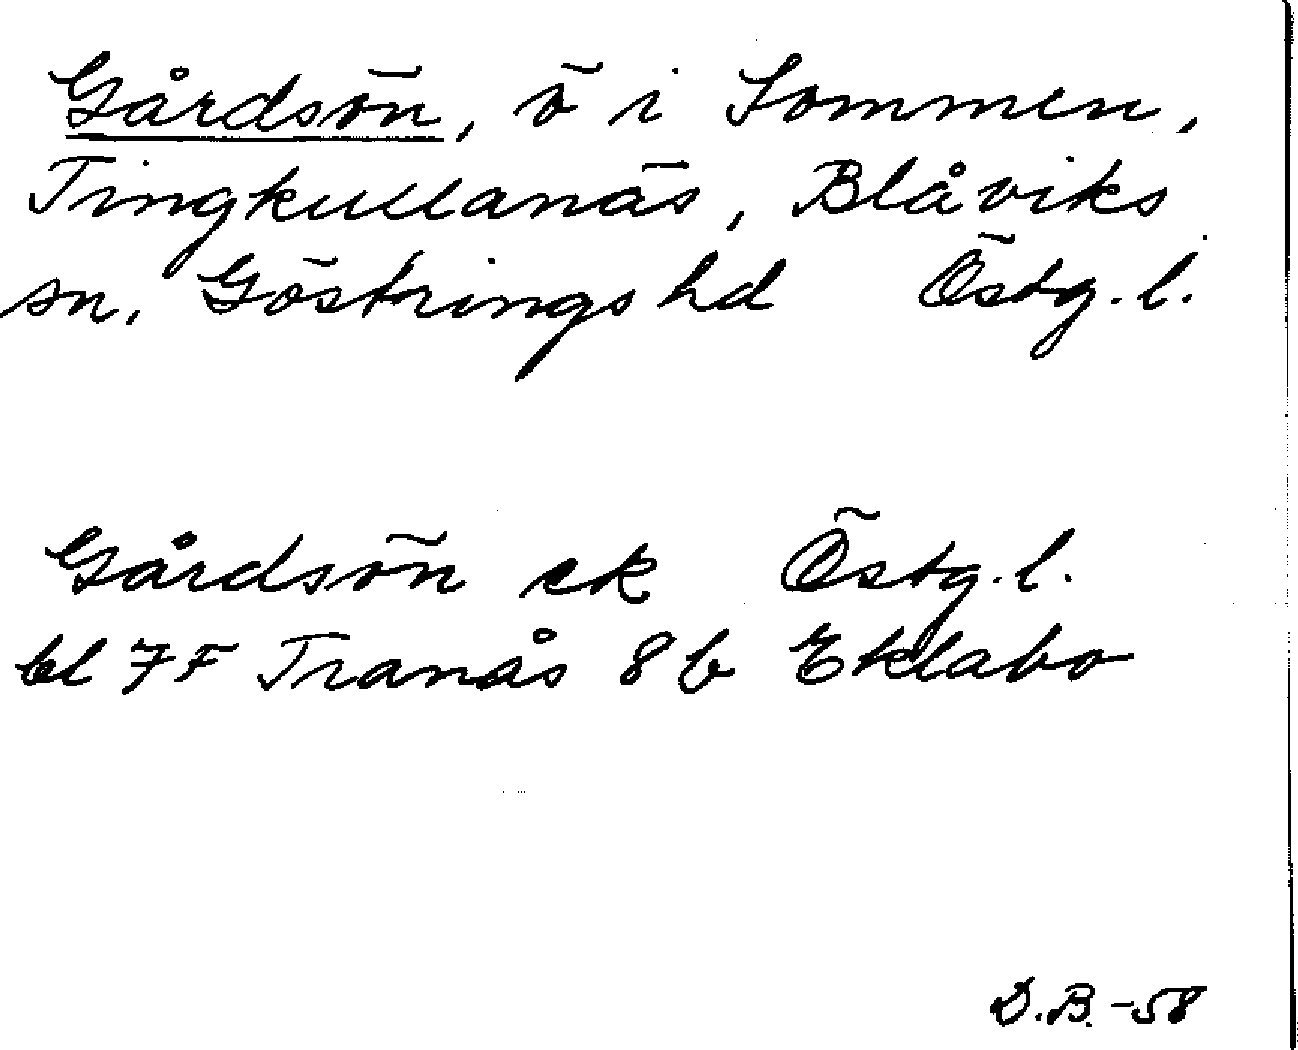 Gårdsön, ö i Sommen,
Tingkullanäs, Blåviks
sn. Göstrings hd Östg. l.
Gårdsön ek Östg. l.
bl 7F Tranås 8 b Eklabo
D.B. -58